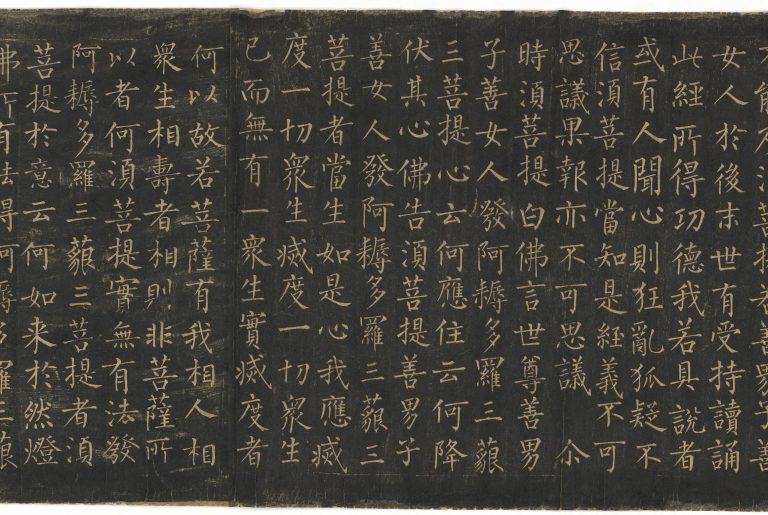 不能及須菩提若善男子善
女人於後末世有受持讀誦
此經所得功德我若具說者
或有人聞心則狂亂狐疑不
信須菩提當知是經義不可
思議果報亦不可思議 尒
時須菩提白佛言世尊善男
子善女人發阿耨多羅三藐
三菩提心云何應住云何降
伏其心佛告須菩提善男子
善女人發阿耨多羅三藐三
菩提者當生如是心我應滅
度一切衆生滅度一切衆生
已而無有一衆生實滅度者
何以故若菩薩有我相人相
衆生相壽者相則非菩薩所
以者何須菩提實無有法發
阿耨多羅三藐三菩提者須
菩提於意云何如来於然燈
佛所有法得阿耨多羅三藐